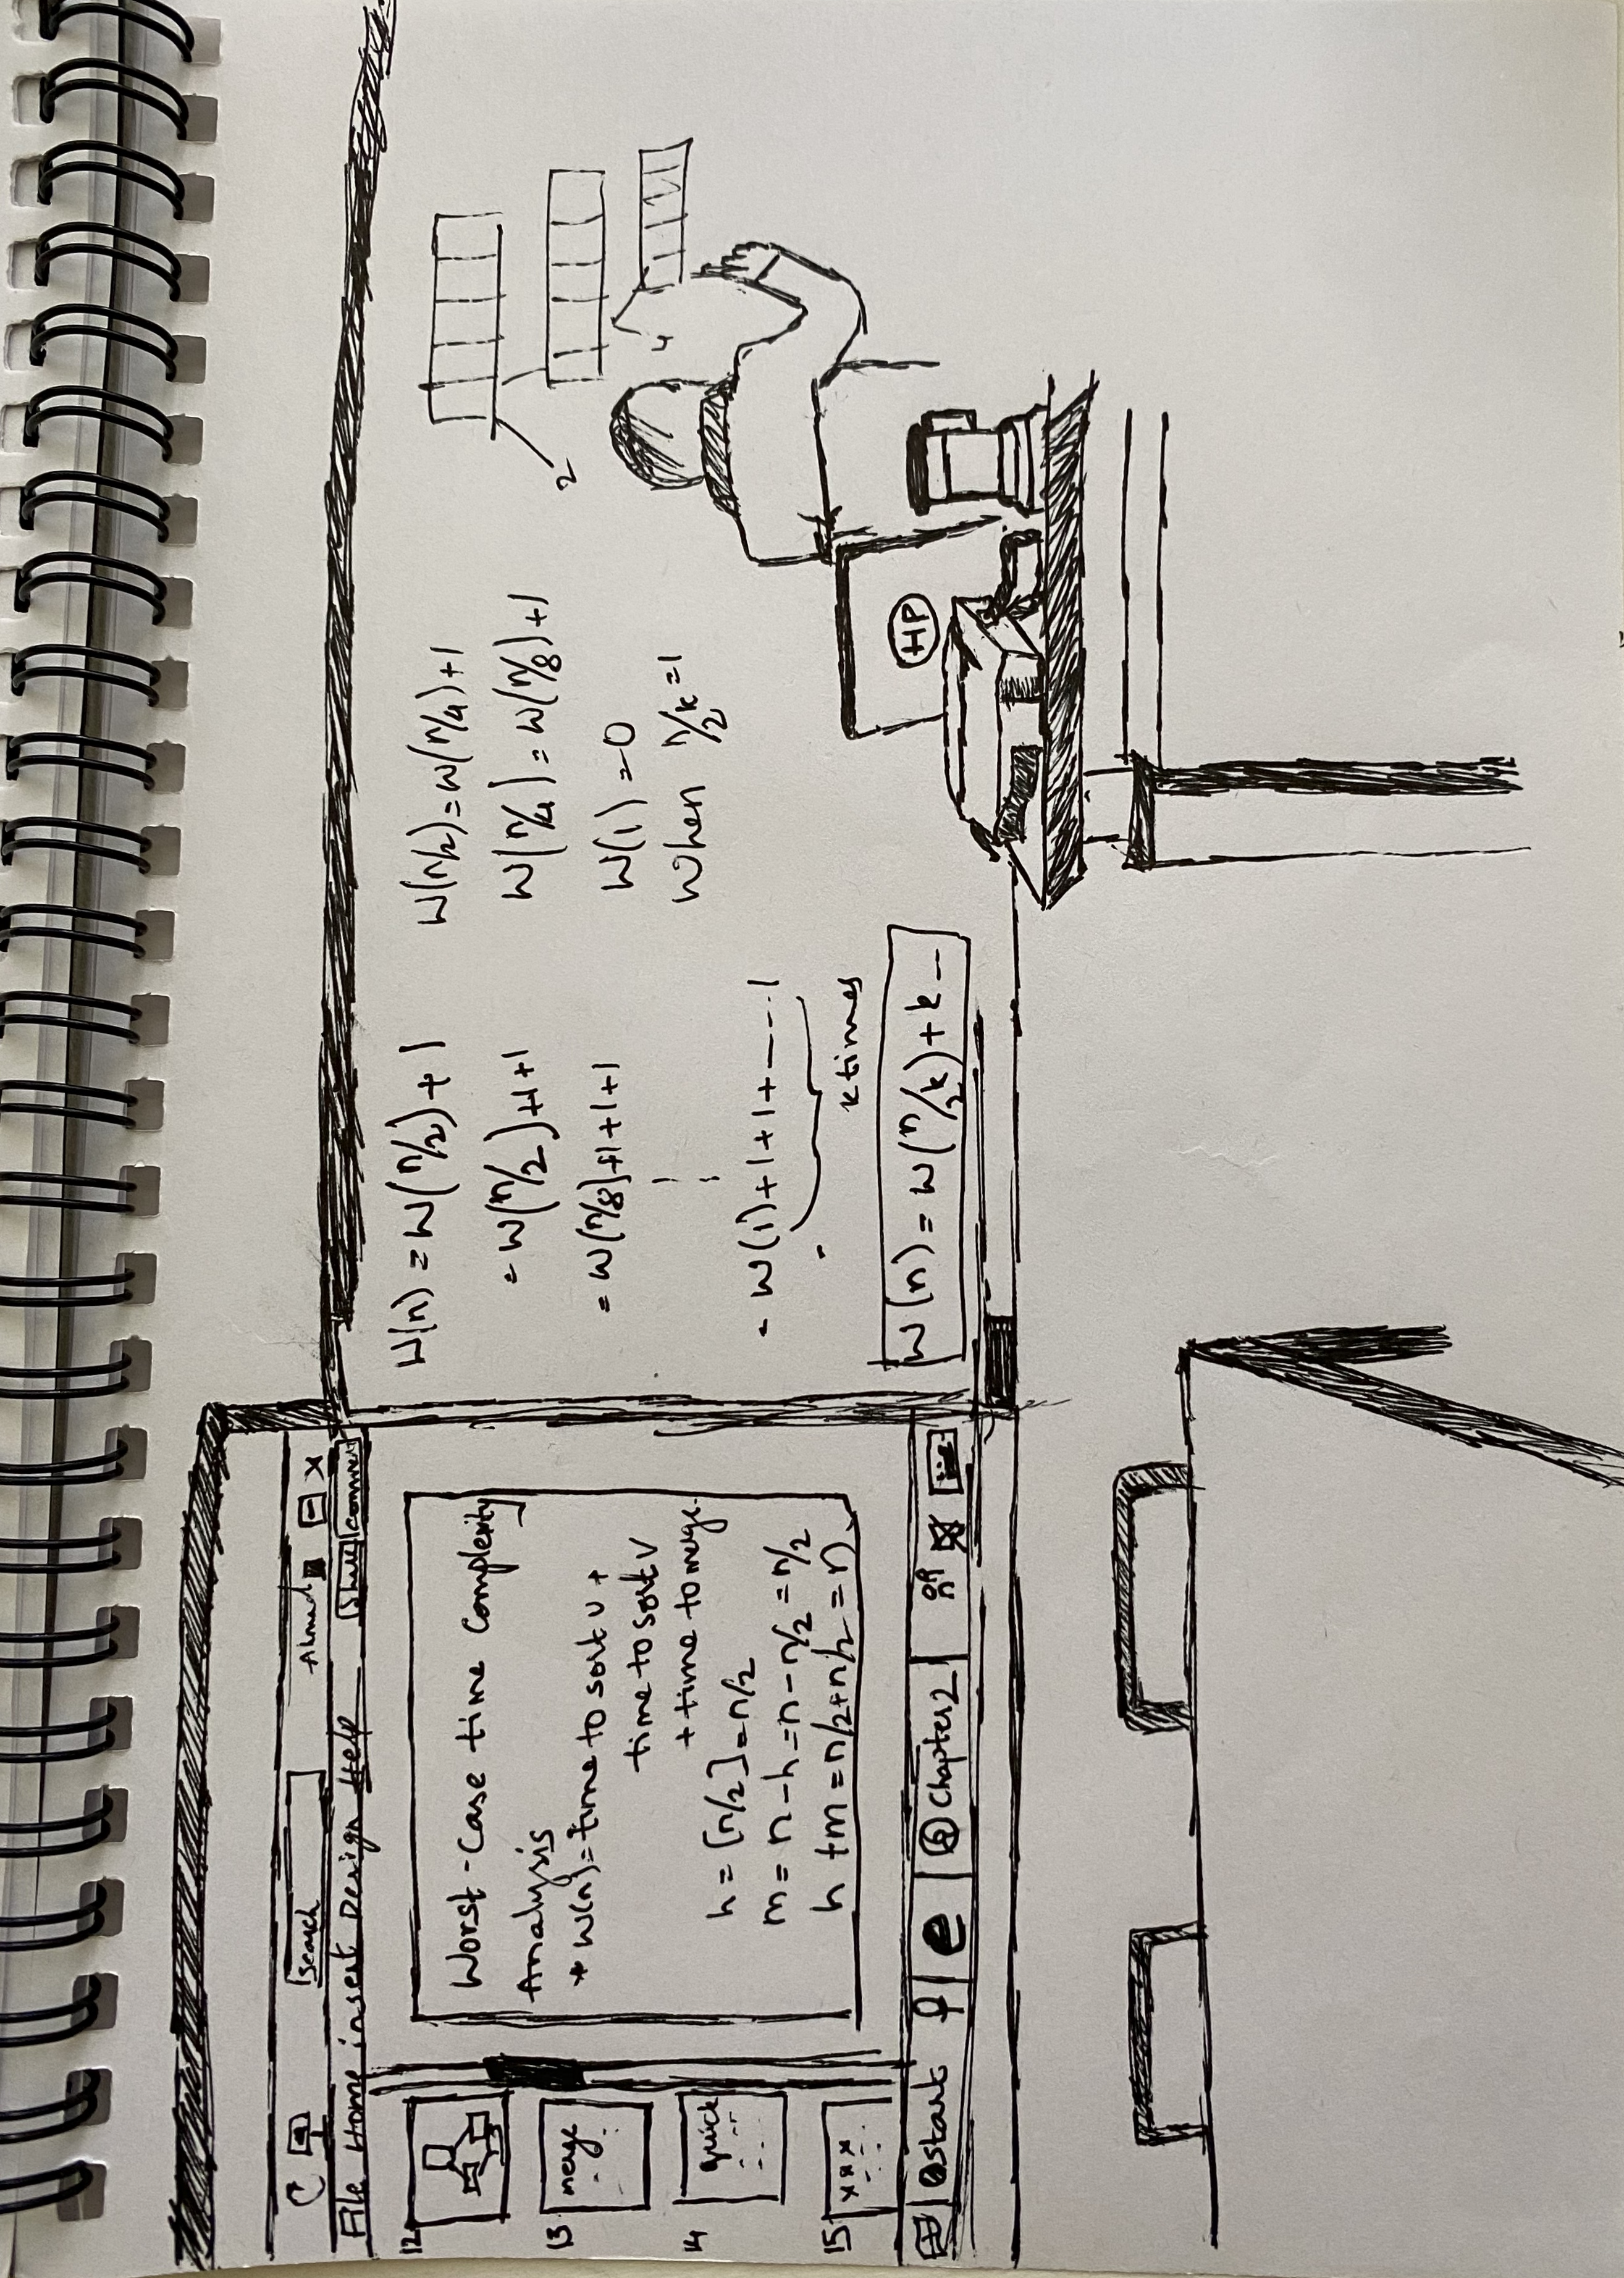 Search
Ahmad
File Home insert Design Help
Share
comment
12
13
merge
14
quick
15
xxx
Worst-Case time complexity
Analysis
* W(n)=time to sort U +
time to sort V
+ time to merge.
h = [n/2] = n/2
m = n - h = n - n/2 = n/2
h + m = n/2 + n/2 = n
Start
e
Chapter 2
W(n) = W(n/2) + 1
= W(n/2)+1+1
= W(n/8)+1+1+1
= W(1)+1+1+1+---.1
k times
W(n) = W(n/2k)+k--
W(n/2)=W(n/4)+1
W(n/4)=W(n/8)+1
W(1)=0
When n/2k=1
2
4
HP